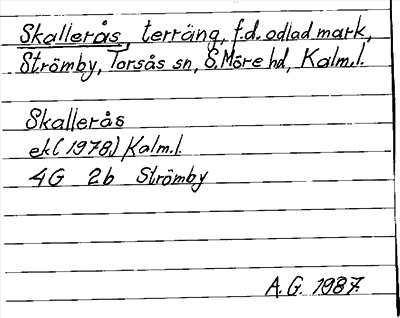 Skallerås, terräng, f.d. odlad mark,
Strömby, Torsås sn, S. Möre hd, Kalm.l.
Skallerås
ek.(1978) Kalm.l.
4G 2b Strömby
A.G. 1987